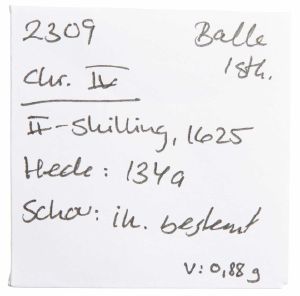 2309 Balle
1 sth.
Chr. IV
II-Skilling, 1625
Hede: 134a
Schou: ik. bestemt
V: 0,88 g